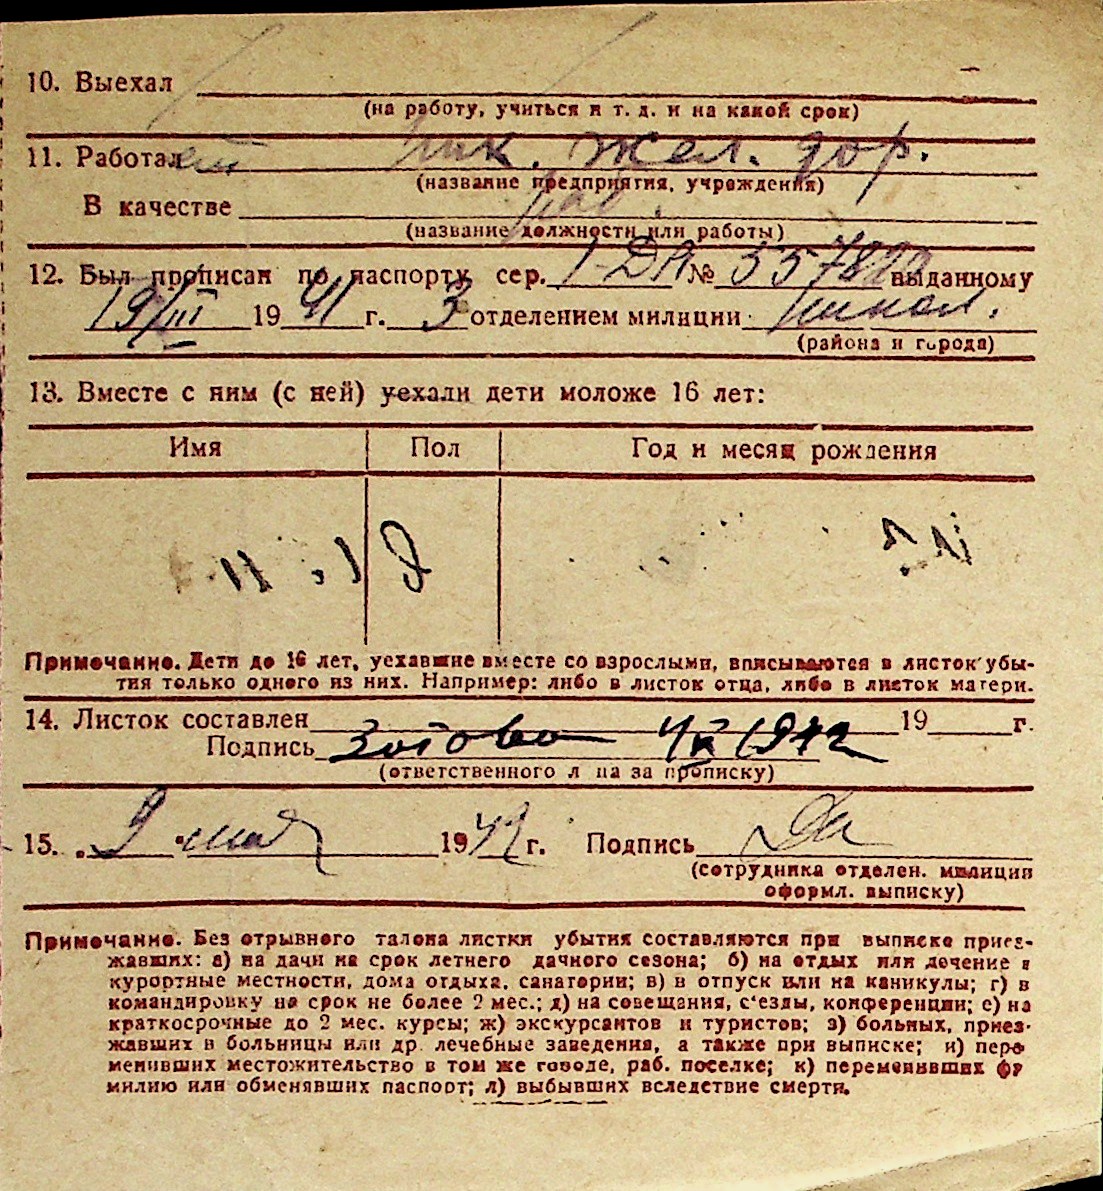 10. Выехал
(на работу, учиться и т. д. и на какой срок)
11. Работал жел. дор.
(название предприятия, учреждения)
В качестве раб.
(название должности или работы)
12. Был прописан по паспорту сер. № выданному
19/III 1941 г. 3 отделением милиции
(района и города)
13. Вместе с ним (с ней) уехали дети моложе 16 лет:
Имя Пол Год и месяц рождения
Примечание. Дети до 16 лет, уехавшие вместе со взрослыми, вписываются в листок убы-
тия только одного из них. Например: либо в листок отца, либо в листок матери.
14. Листок составлен 19 г.
Подпись Зотова 1942
(ответственного лица за прописку)
15. „9 " мая 1942 г. Подпись
(сотрудника отделен. милиции
оформл. выписку)
Примечание. Без отрывного талона листки убытия составляются при выписке приез-
жавших: а) на дачи на срок летнего дачного сезона; б) на отдых или лечение в
курортные местности, дома отдыха, санатории; в) в отпуск или на каникулы; г) в
командировку на срок не более 2 мес.; д) на совещания, с'езды, конференции; е) на
краткосрочные до 2 мес. курсы; ж) экскурсантов и туристов; з) больных, приез-
жавших в больницы или др. лечебные заведения, а также при выписке; и) пере
менивших местожительство в том же городе, раб. поселке; к) переменивших фа
милию или обменявших паспорт; л) выбывших вследствие смерти.